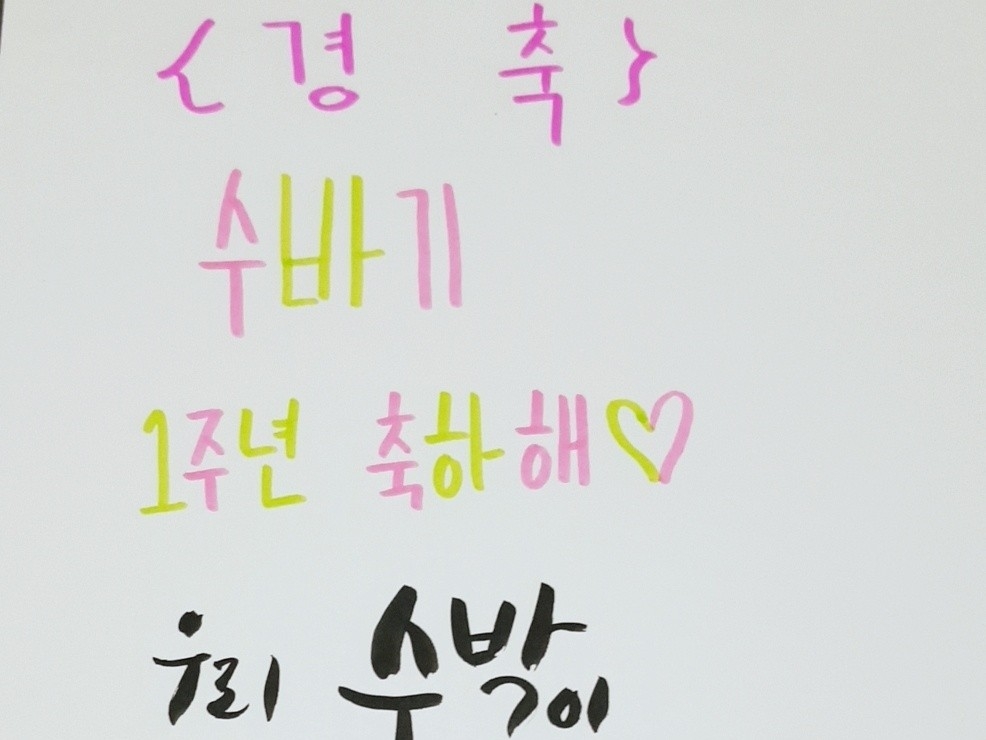 {경 축}
수바기
1주년 축하해♡
우리 수박이